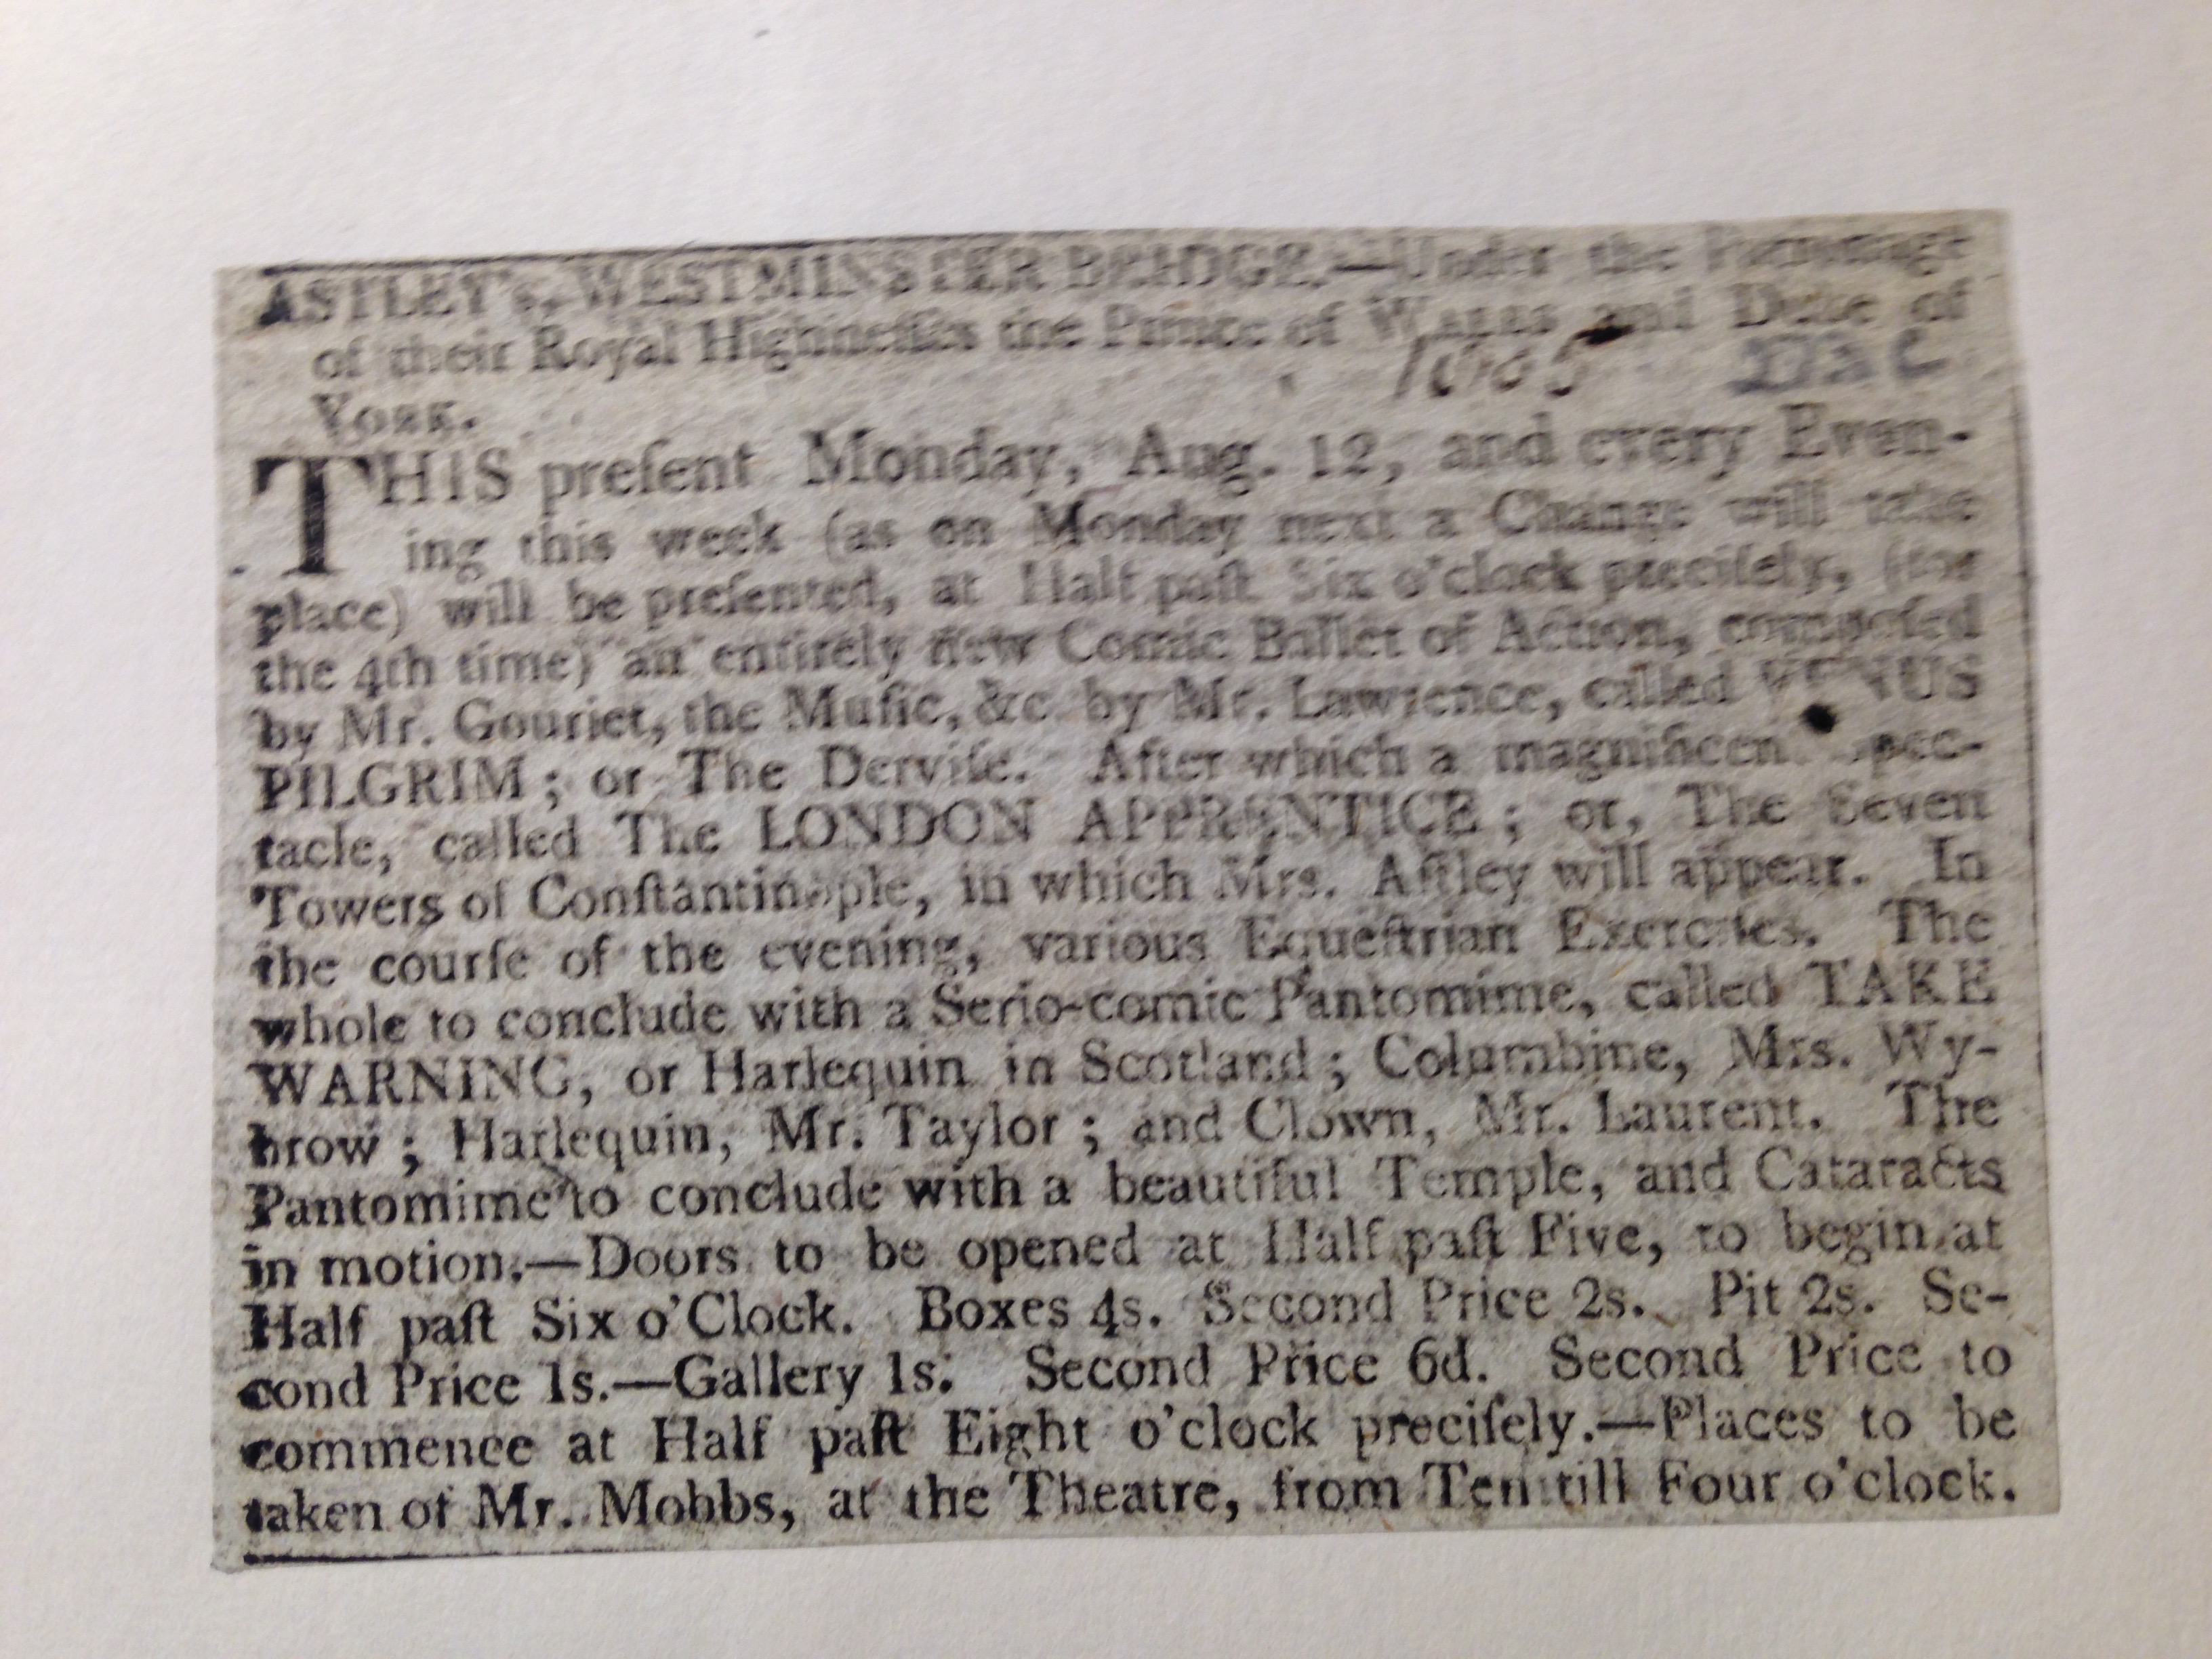 ASTLEY's, WESTMINSTER BRIDGE.—Under the Patronage
of their Royal Highneſſes the Prince of WALES and Duke of
YORK.
THIS preſent Monday, Aug. 12, and every Even-
ing this week (as on Monday next a Change will take
place) will be preſented, at Half paſt Six o'clock preciſely, (for
the 4th time) an entirely new Comic Ballet of Action, compoſed
by Mr. Gouriet, the Muſic, &c. by Mr. Lawrence, called VENUS
PILGRIM; or The Derviſe. After which a magnificent Spec-
tacle, called The LONDON APPRENTICE; or, The Seven
Towers of Conſtantinople, in which Mrs. Aſtley will appear. In
the courſe of the evening, various Equeſtrian Exerciſes. The
whole to conclude with a Serio-comic Pantomime, called TAKE
WARNING, or Harlequin in Scotland; Columbine, Mrs. Wy-
brow; Harlequin, Mr. Taylor; and Clown, Mr. Laurent. The
Pantomime to conclude with a beautiful Temple, and Cataracts
in motion.—Doors to be opened at Half paſt Five, to begin at
Half paſt Six o'Clock. Boxes 4s. Second Price 2s. Pit 2s. Se-
cond Price 1s.—Gallery 1s. Second Price 6d. Second Price to
commence at Half paſt Eight o'clock preciſely.—Places to be
taken of Mr. Mobbs, at the Theatre, from Ten till Four o'clock.